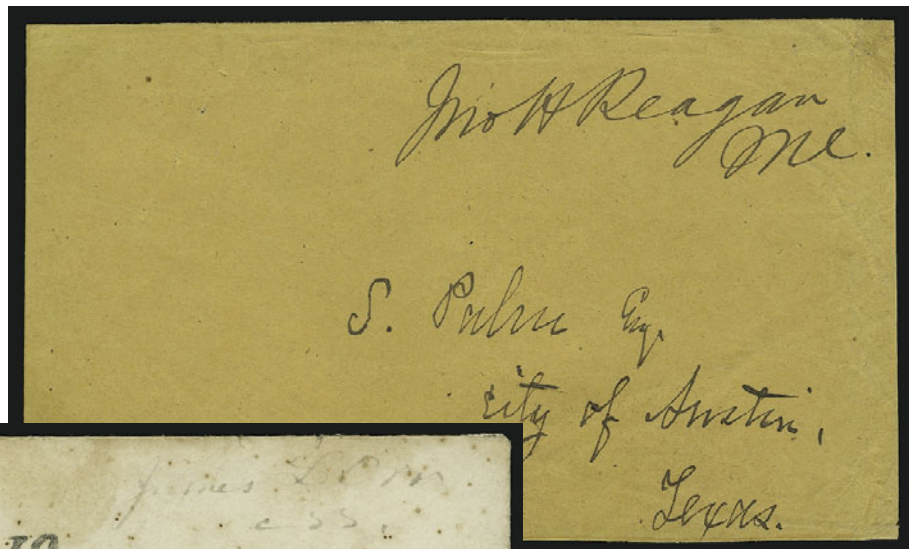 Jno H Reagan
MC.
S. Palm Esq.
city of Austin,
Texas.
James
10